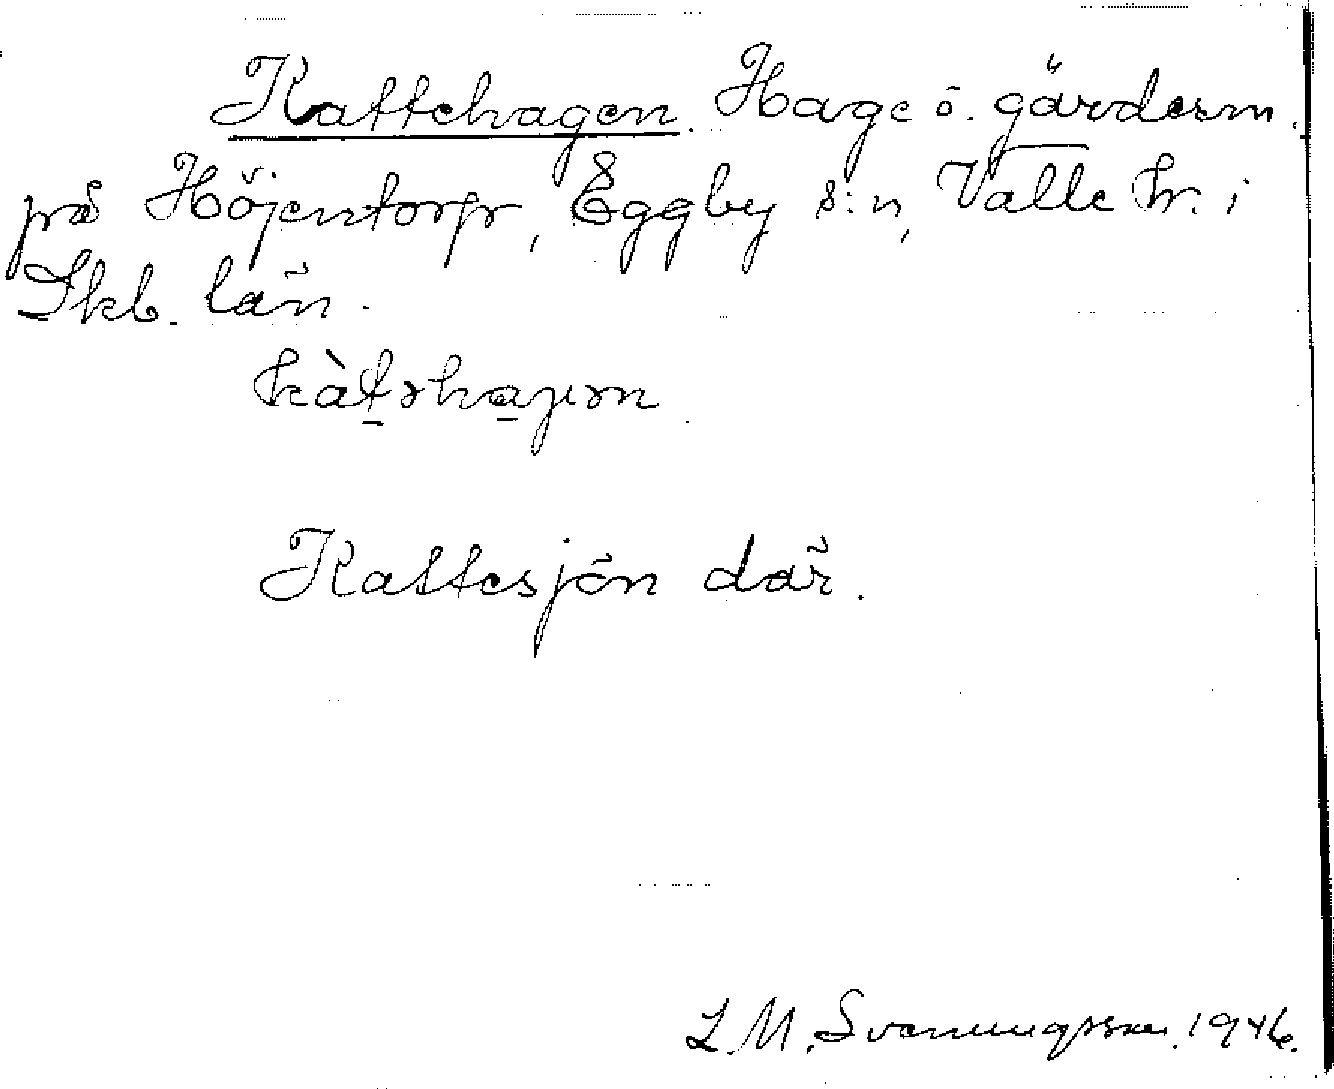 Kattehagen. Hage ö. gärdesm.
på Höjentorp, Eggby s:n, Valle hr. i
Skb. län.
kàt̠əha̠ɣən
Kattesjön där.
L.M. Svenungsson. 1946.